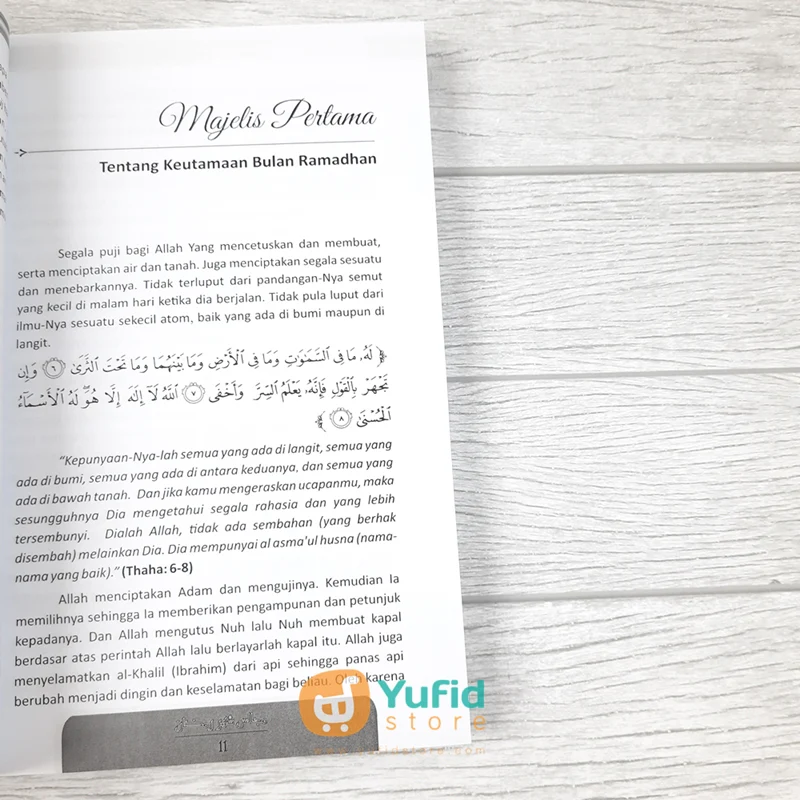 Majelis Pertama
Tentang Keutamaan Bulan Ramadhan
Segala puji bagi Allah Yang mencetuskan dan membuat,
serta menciptakan air dan tanah. Juga menciptakan segala sesuatu
dan menebarkannya. Tidak terluput dari pandangan-Nya semut
yang kecil di malam hari ketika dia berjalan. Tidak pula luput dari
ilmu-Nya sesuatu sekecil atom, baik yang ada di bumi maupun di
langit.
﴿ لَهُۥ مَا فِى ٱلسَّمَٰوَٰتِ وَمَا فِى ٱلْأَرْضِ وَمَا بَيْنَهُمَا وَمَا تَحْتَ ٱلثَّرَىٰ ٦ وَإِن
تَجْهَرْ بِٱلْقَوْلِ فَإِنَّهُۥ يَعْلَمُ ٱلسِّرَّ وَأَخْفَى ٧ ٱللَّهُ لَآ إِلَٰهَ إِلَّا هُوَ ۖ لَهُ ٱلْأَسْمَآءُ
ٱلْحُسْنَىٰ ٨ ﴾
“Kepunyaan-Nya-lah semua yang ada di langit, semua yang
ada di bumi, semua yang ada di antara keduanya, dan semua yang
ada di bawah tanah. Dan jika kamu mengeraskan ucapanmu, maka
sesungguhnya Dia mengetahui segala rahasia dan yang lebih
tersembunyi. Dialah Allah, tidak ada sembahan (yang berhak
disembah) melainkan Dia. Dia mempunyai al asma'ul husna (nama-
nama yang baik).” (Thaha: 6-8)
Allah menciptakan Adam dan mengujinya. Kemudian Ia
memilihnya sehingga Ia memberikan pengampunan dan petunjuk
kepadanya. Dan Allah mengutus Nuh lalu Nuh membuat kapal
berdasar atas perintah Allah lalu berlayarlah kapal itu. Allah juga
menyelamatkan al-Khalil (Ibrahim) dari api sehingga panas api
berubah menjadi dingin dan keselamatan bagi beliau. Oleh karena
11
Yufid
store